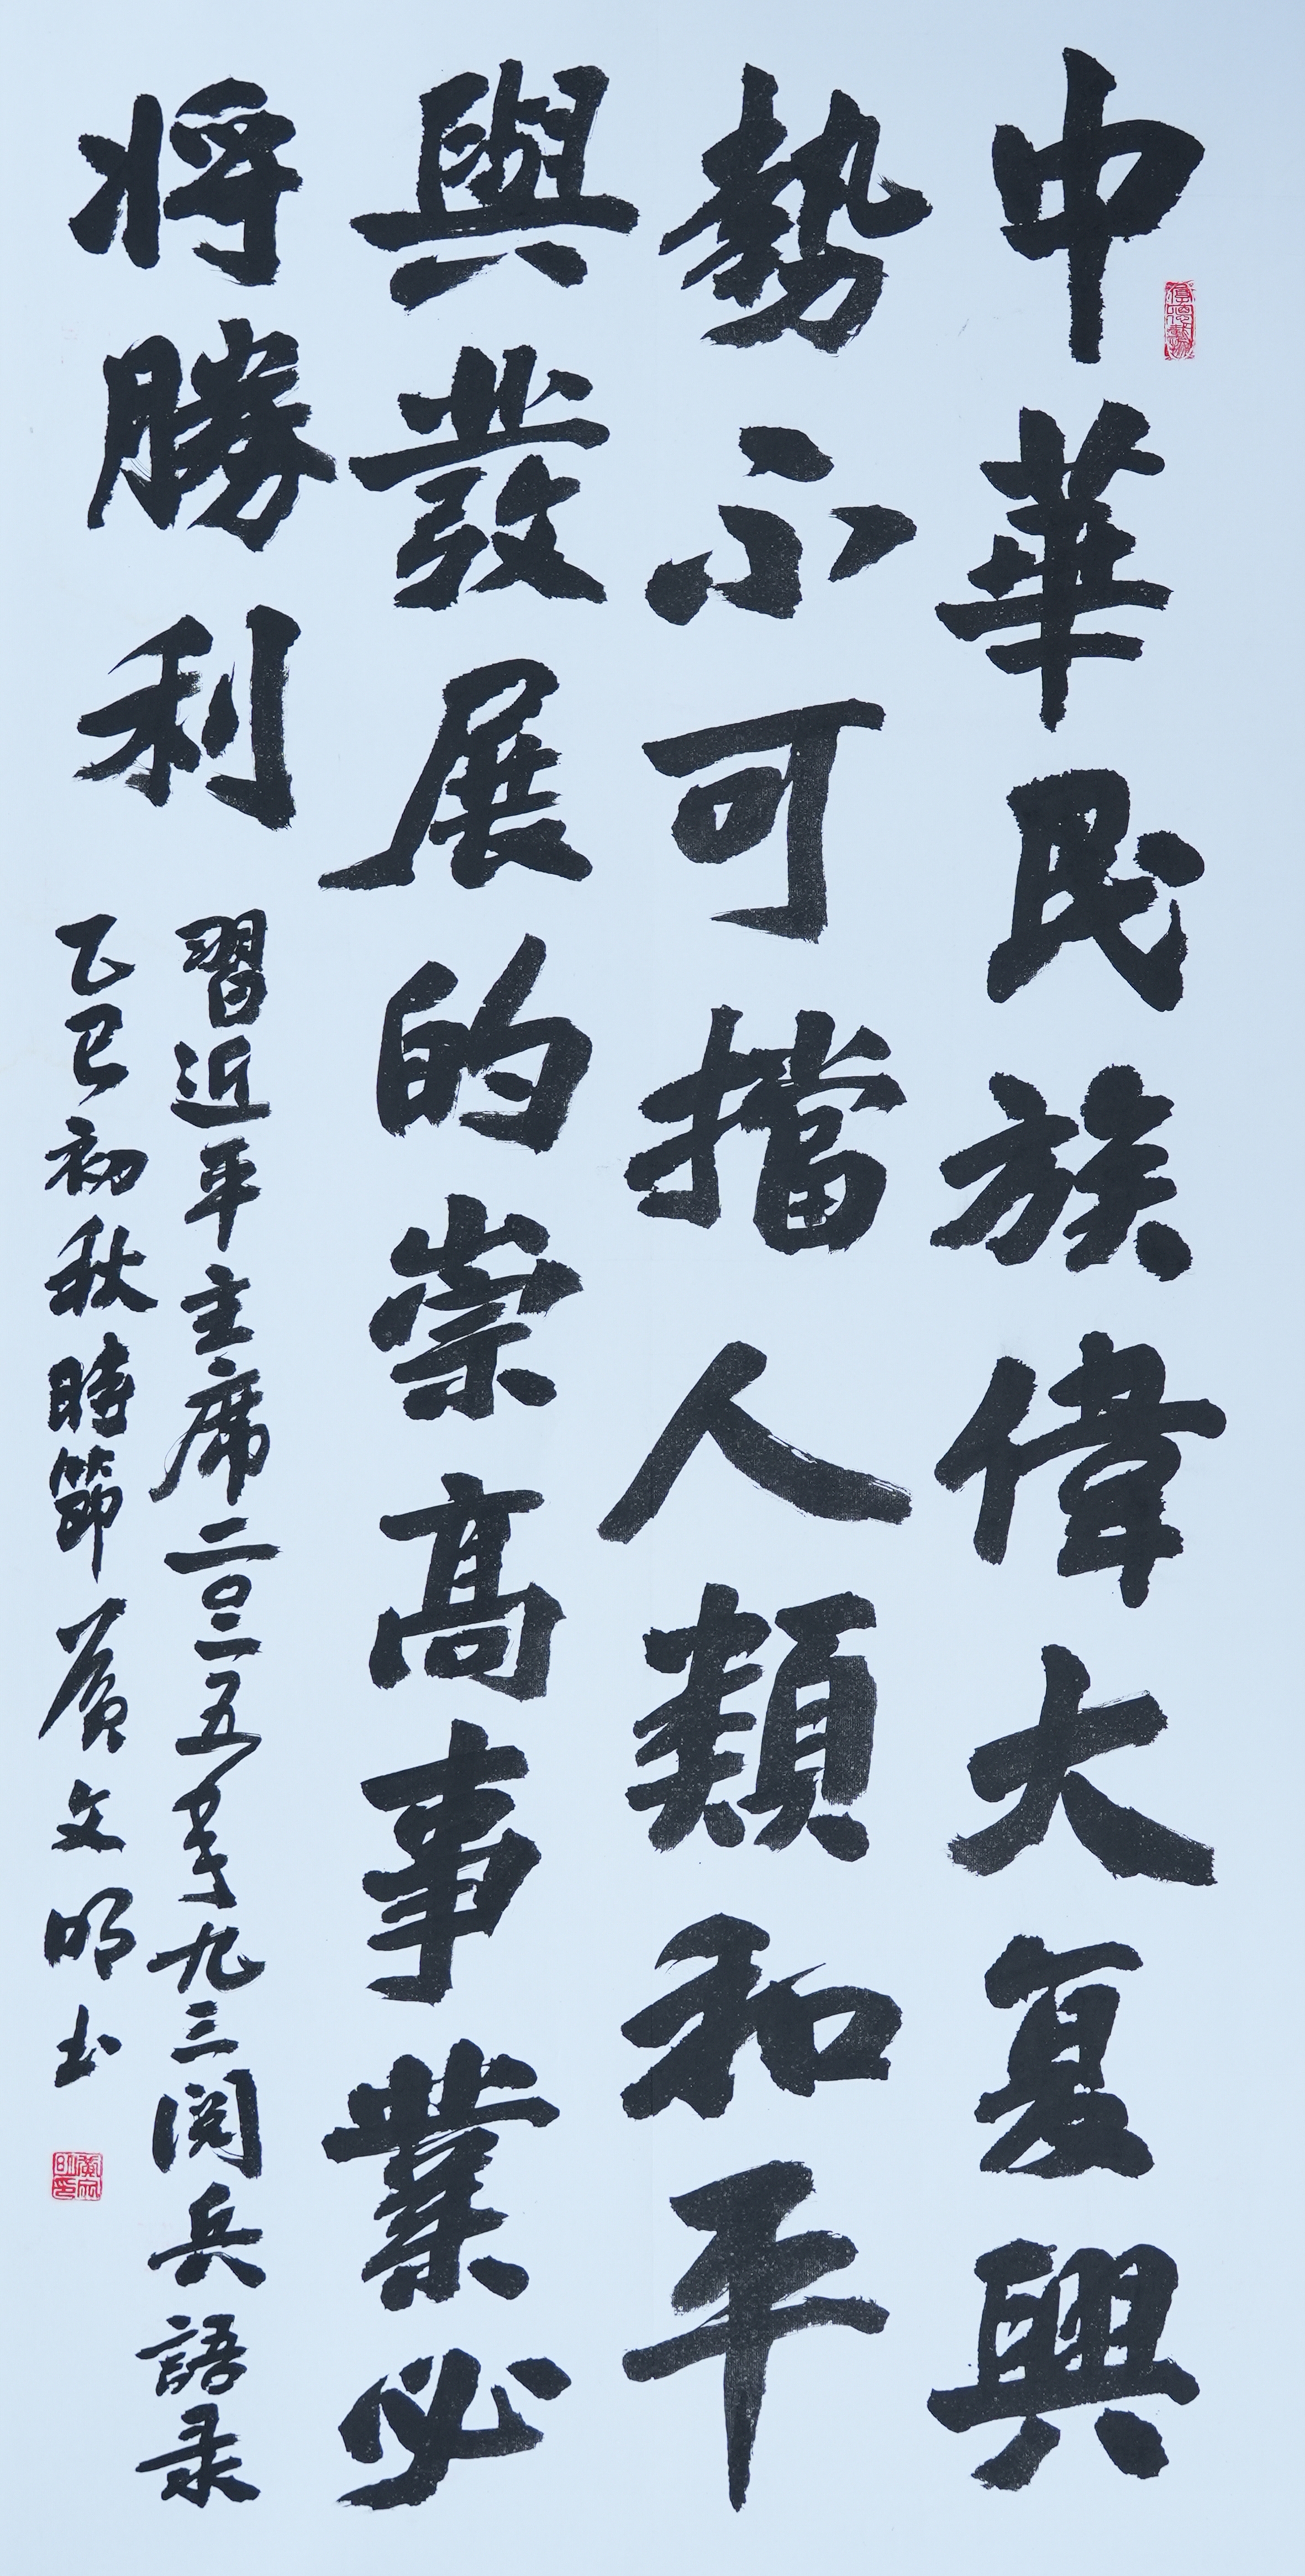 中華民族偉大复興
勢不可擋人類和平
與發展的崇高事業必
將勝利
習近平主席二〇二五年九三閱兵語录
乙巳初秋時節黄文明书